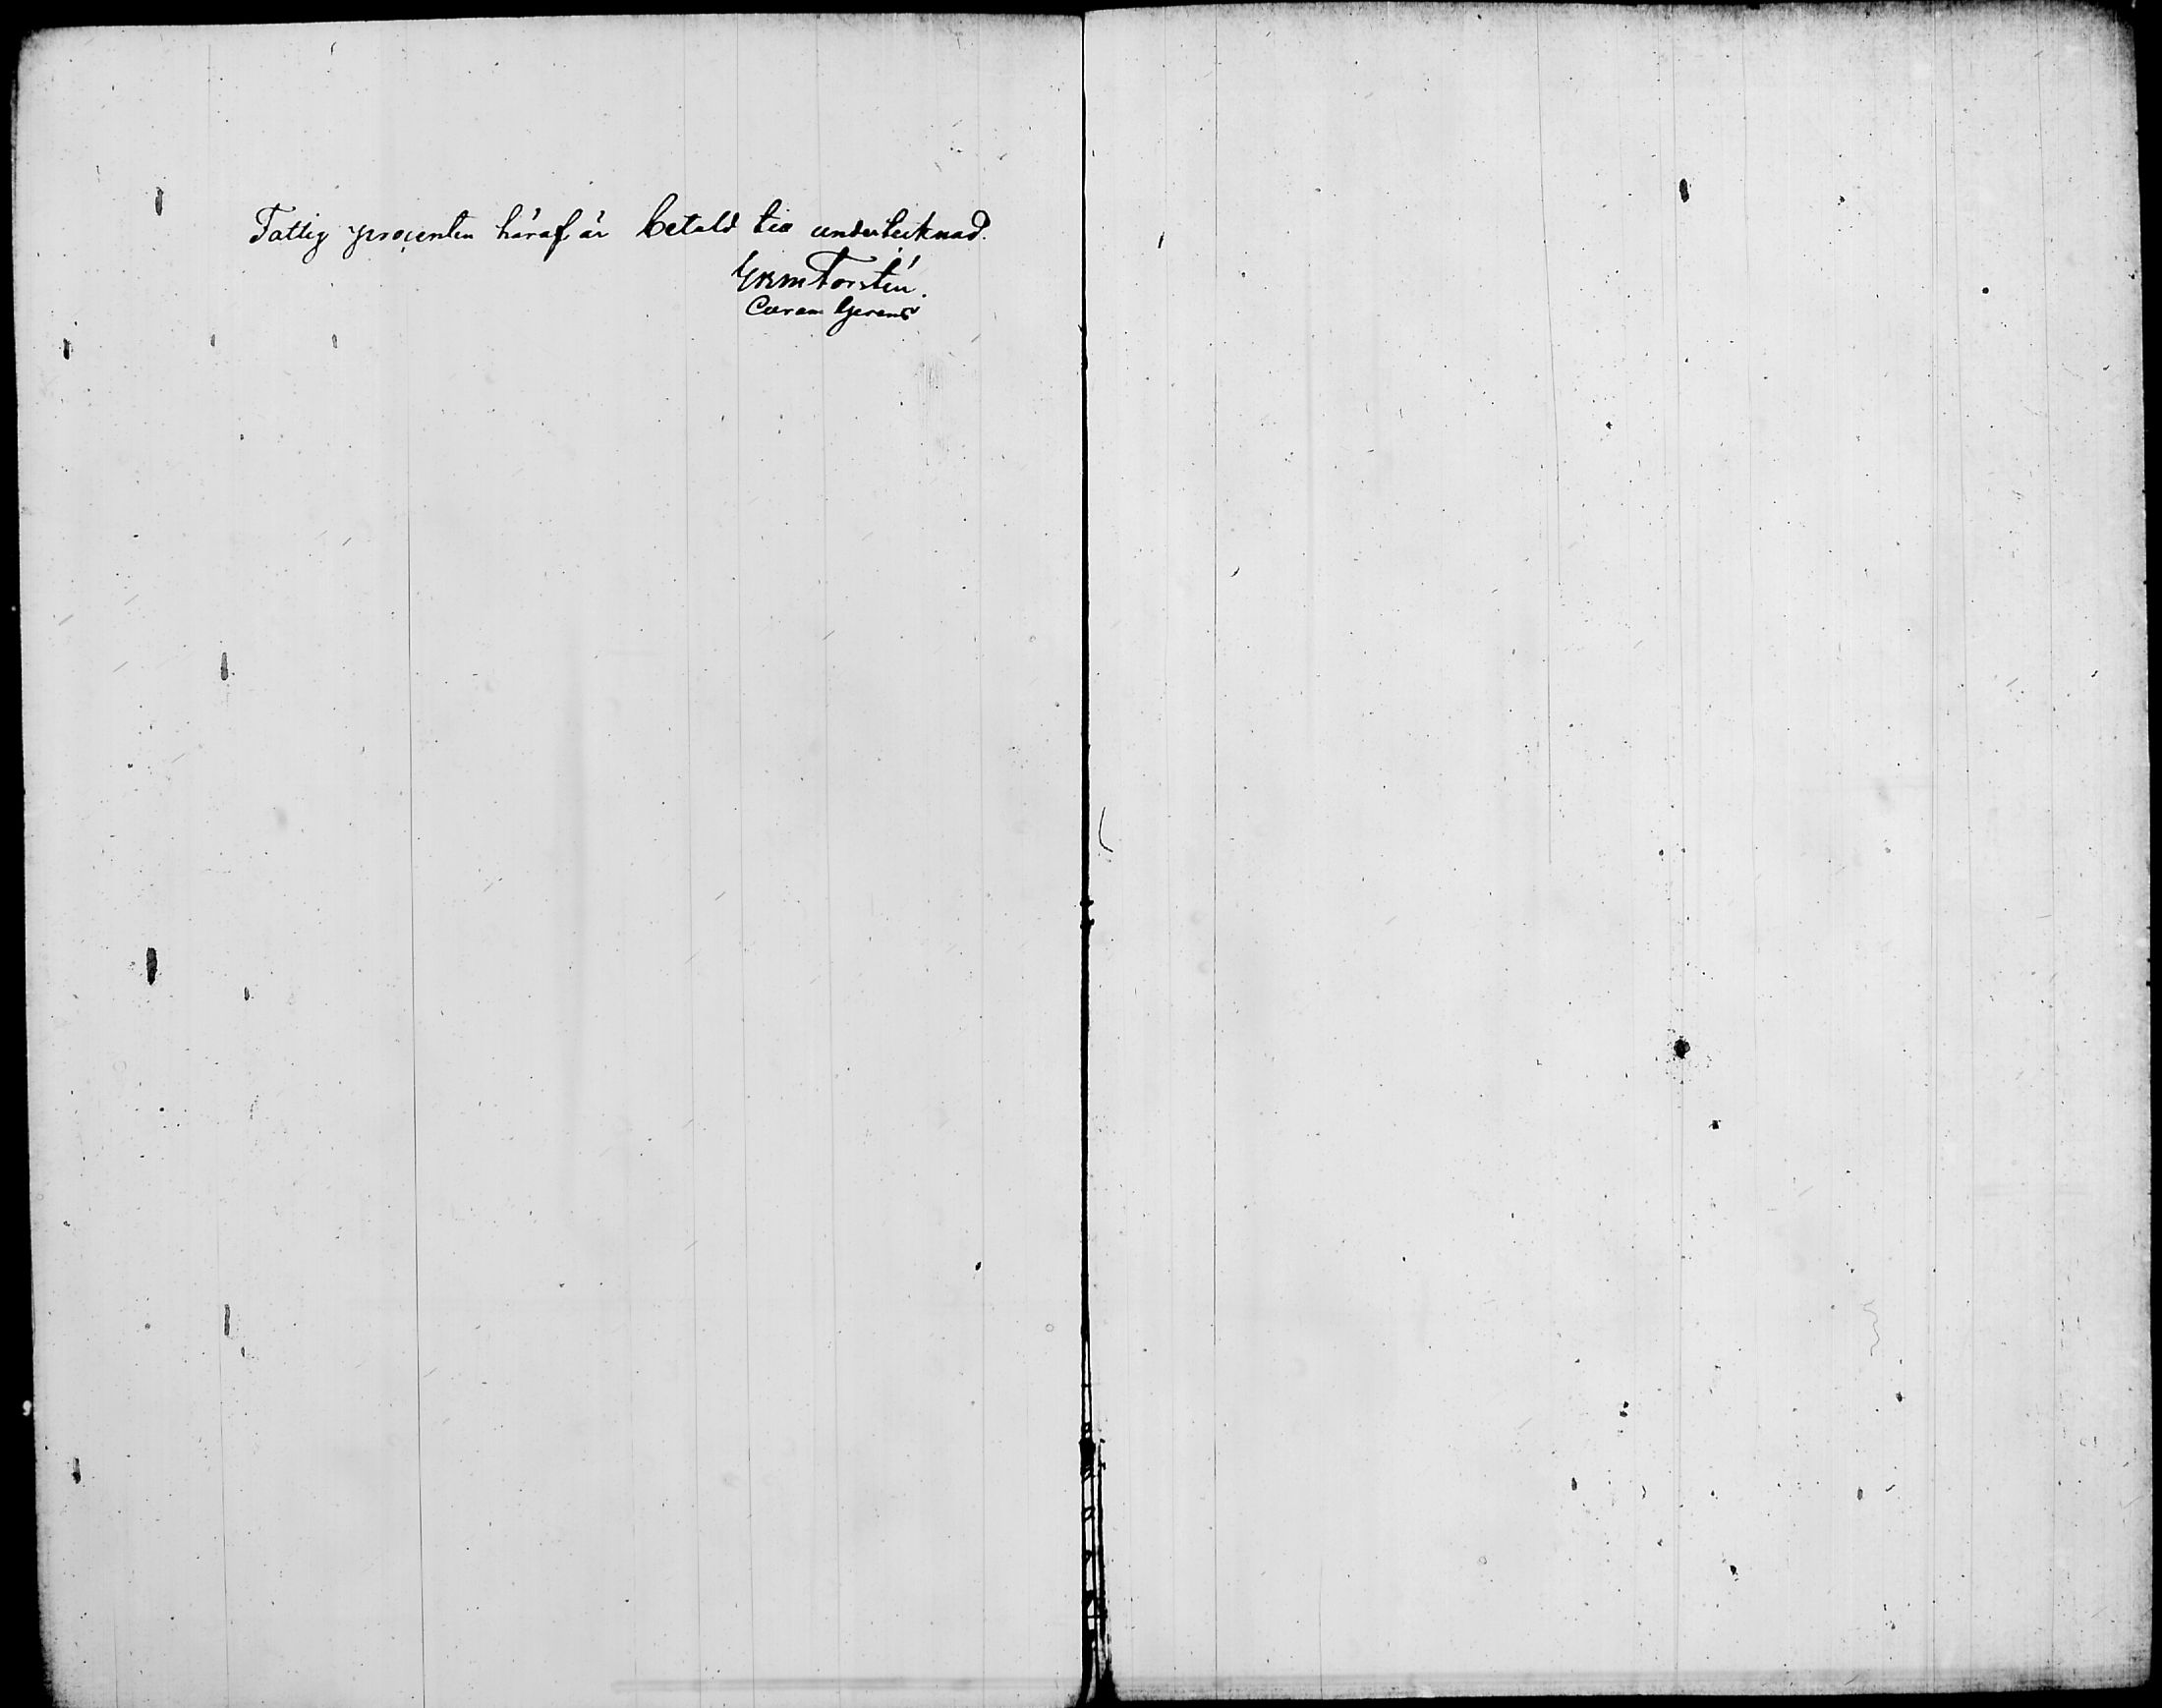 Fattig procenten häraf är betald till undertecknad.
Forstén.
Curam Gerens